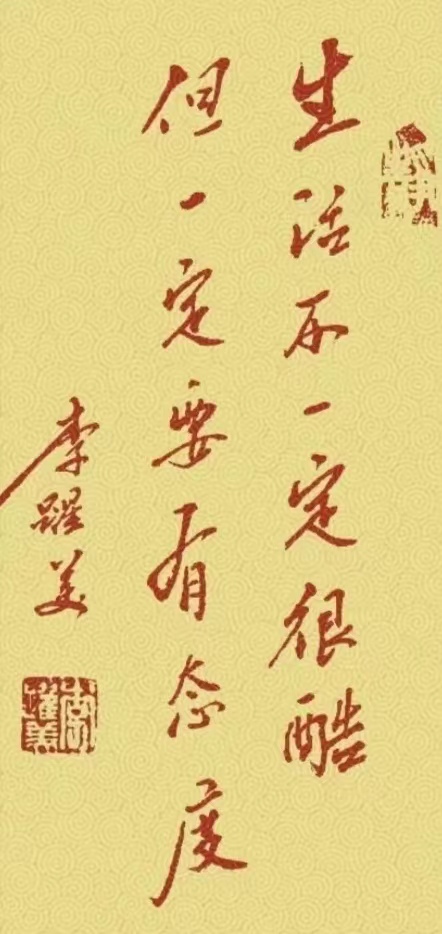 生活不一定很酷
但一定要有态度
李躍美
李躍美